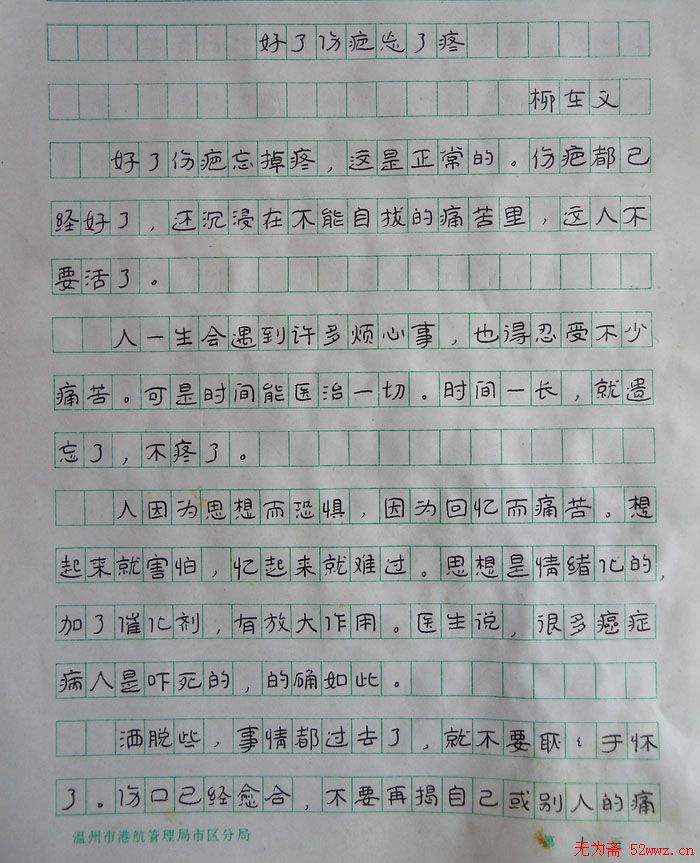 好了伤疤忘了疼
柳在义
好了伤疤忘掉疼，这是正常的。伤疤都已
经好了，还沉浸在不能自拔的痛苦里，这人不
要活了。
人一生会遇到许多烦心事，也得忍受不少
痛苦。可是时间能医治一切。时间一长，就遗
忘了，不疼了。
人因为思想而恐惧，因为回忆而痛苦。想
起来就害怕，忆起来就难过。思想是情绪化的，
加了催化剂，有放大作用。医生说，很多癌症
病人是吓死的，的确如此。
洒脱些，事情都过去了，就不要耿耿于怀
了。伤口已经愈合，不要再揭自己或别人的痛
温州市港航管理局市区分局
第 页
无为斋 52wwz.cn